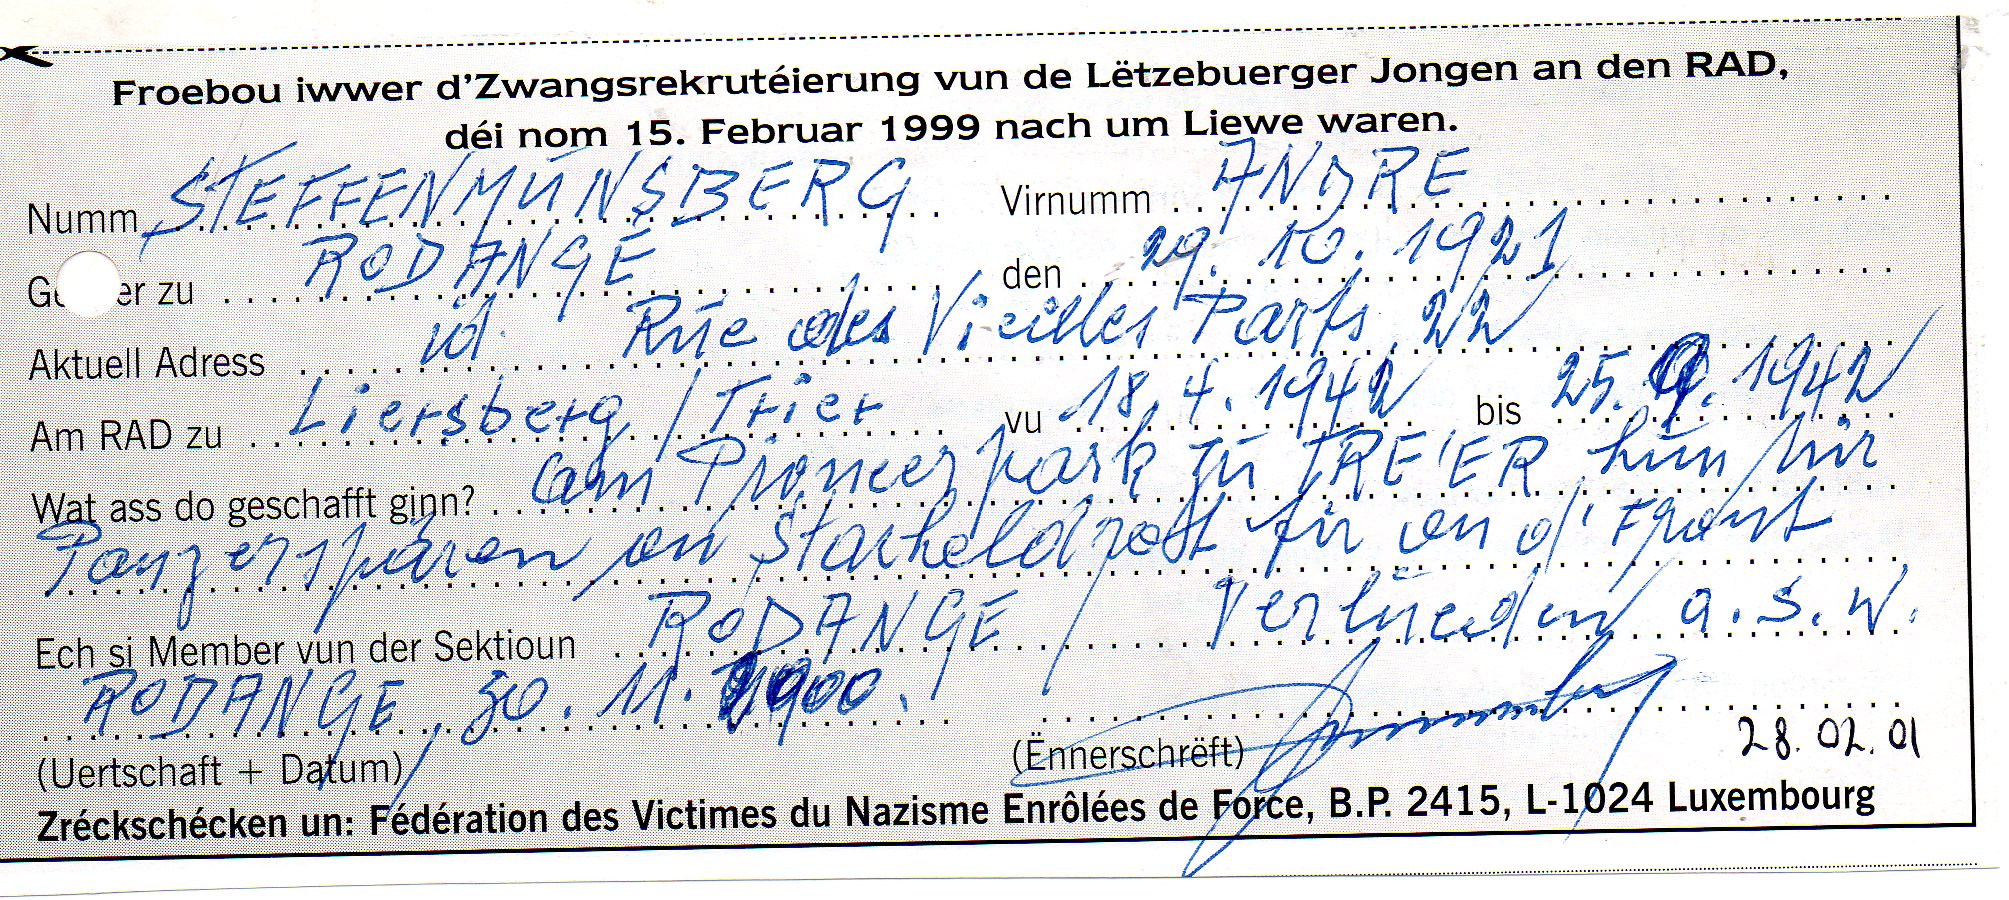 Froebou iwwer d'Zwangsrekrutéierung vun de Lëtzebuerger Jongen an den RAD,
déi nom 15. Februar 1999 nach um Liewe waren.
Numm STEFFENMÜNSBERG Virnumm ANDRE
Ge er zu RODANGE den 29. 10. 1921
Aktuell Adress id. Rue des Vieilles Parts 22
Am RAD zu Liersberg / Trier vu 18. 4. 1942 bis 25. 9. 1942
Wat ass do geschafft ginn? am Pioneerpark zu TRE'ER hun mir
Panzerspären an Stacheldrot fir an d'Front
Verlueden a. s. w.
Ech si Member vun der Sektioun RODANGE
RODANGE, 30. 11. 1900.
28. 02. 01
(Uertschaft + Datum) (Ënnerschrëft)
Zréckschécken un: Fédération des Victimes du Nazisme Enrôlées de Force, B.P. 2415, L-1024 Luxembourg